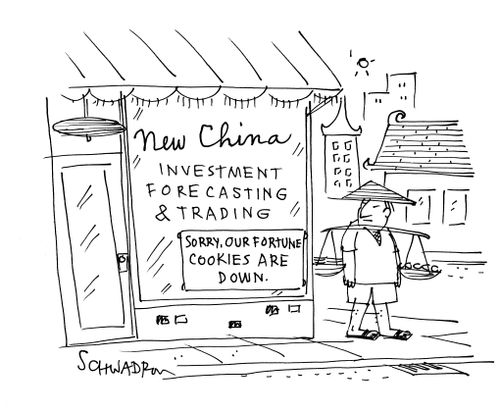 New China
INVESTMENT
FORECASTING
& TRADING
SORRY, OUR FORTUNE
COOKIES ARE
DOWN.
SCHWADRON